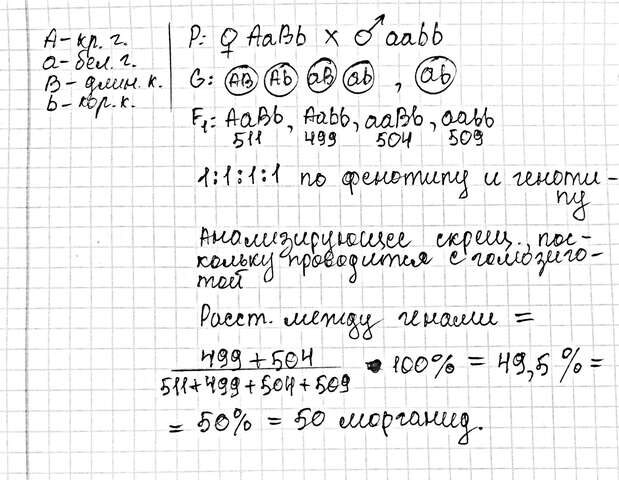 А - кр. г.
а - бел. г.
В - длин. к.
b - кор. к.
P: ♀ AaBb × ♂ aabb
G: AB Ab aB ab , ab
F₁: AaBb, Aabb, aaBb, aabb
511 499 504 509
1:1:1:1 по фенотипу и геноти-
пу
Анализирующее скрещ., пос-
кольку проводится с гомозиго-
той
Расст. между генами =
499 + 504
511+499+504+509
· 100% = 49,5% =
= 50% = 50 морганид.